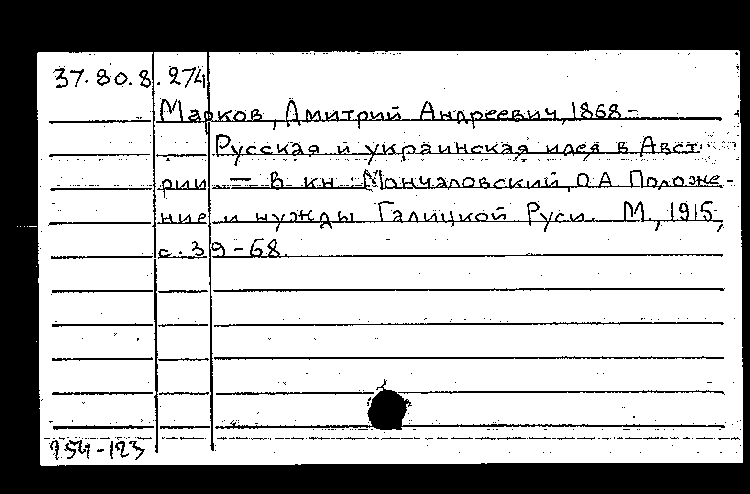 37.80.8.274
Марков, Дмитрий Андреевич, 1868-
Русская и украинская идея в Авст
рии — В кн: Мончаловский, О А Положе-
ние и нужды Галицкой Руси. М., 1915,
с. 39-68.
954-123